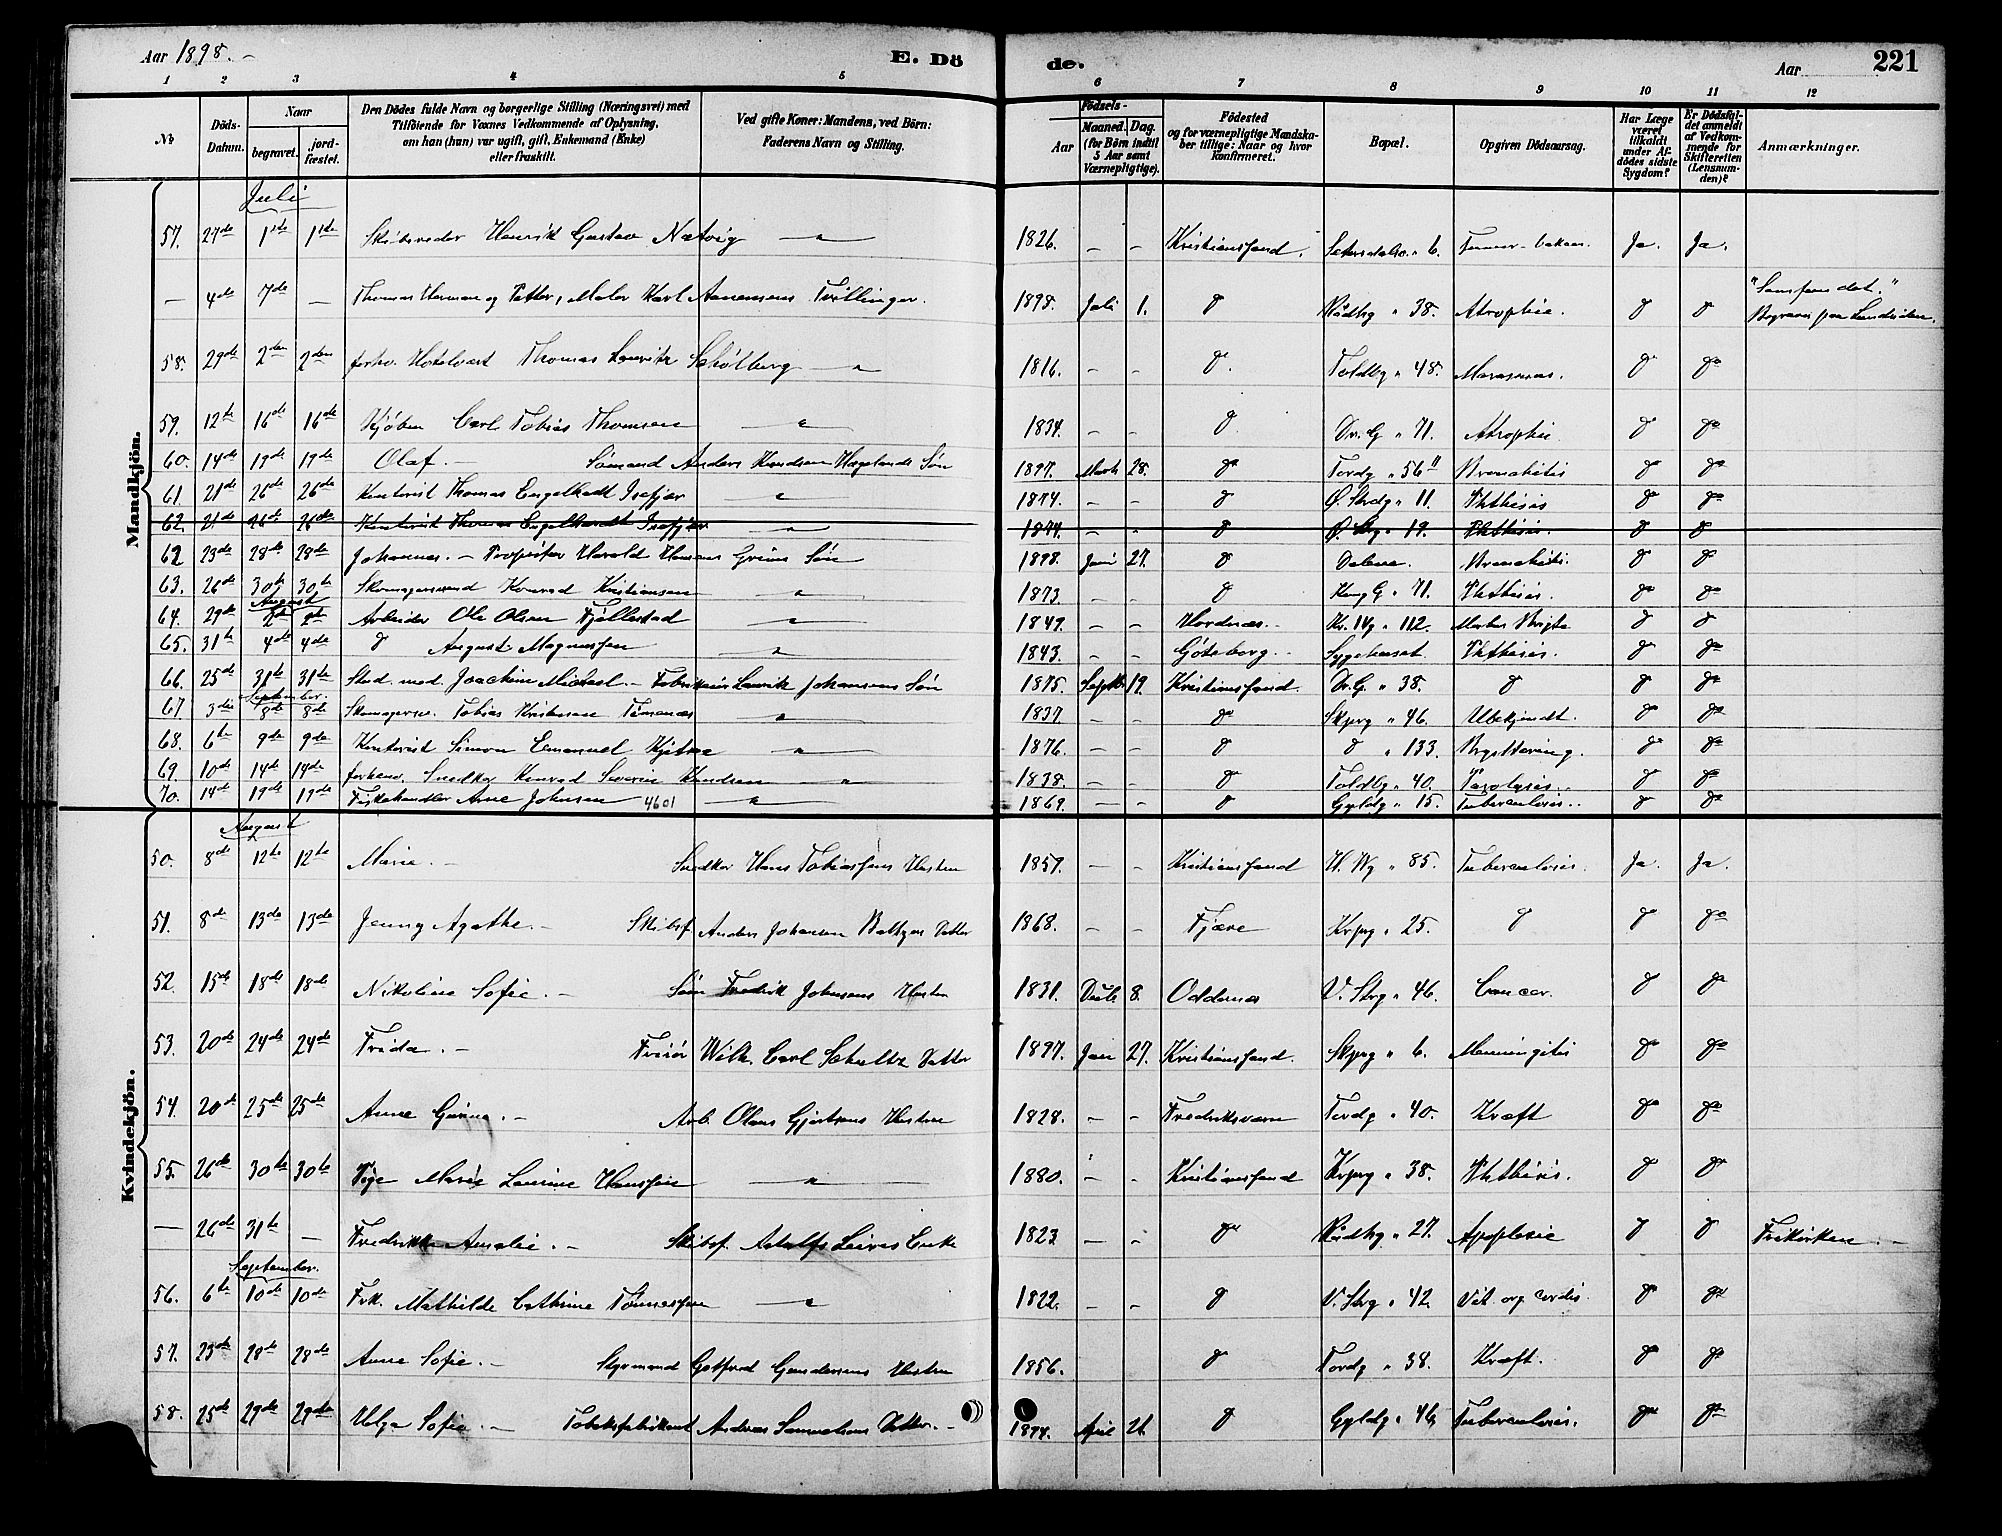 Aar 1898. –
E. Dö
de.
Aar
221
1 2 3 4 5 6 7 8 9 10 11 12
№
Döds-Datum.
Naar
begravet.
jord-fæstet.
Den Dödes fulde Navn og borgerlige Stilling (Næringsvei) med
Tilföiende for Voxnes Vedkommende af Oplysning,
om han (hun) var ugift, gift, Enkemand (Enke)
eller fraskilt.
Ved gifte Koner: Mandens, ved Börn:
Faderens Navn og Stilling.
Födsels-
Aar
Maaned. Dag.
(for Börn indtil 5 Aar samt Værnepligtige).
Födested
og for værnepligtige Mandska-
ber tillige: Naar og hvor
konfirmeret.
Bopæl.
Opgiven Dödsaarsag.
Har Læge været tilkaldt under Afdödes sidste Sygdom?
Er Dödsfaldet anmeldt af Vedkommende for Skifteretten (Lensmanden)?
Anmærkninger.
Mandkjön.
Juli
57. 27de 1ste 1ste Skibsreder Henrik Gustav Natvig – " – 1826. – – Kristiansand. " 6. Ja. Ja.
– 4de 7de – Thomas Herman og Petter, Maler Karl Annensens Trillinger. 1898. Juli 1. d Raadhg " 38. Atrophie. d d
58. 29de 2den 2den forhv. Hotelvært Thomas Lauritz – " – 1816. – – d. Toldbg " 48. Marasmus. d do
59. 12te 16de 16de Kjøbm Carl Tobias Thomsen – " – 1834. – – d. Dr. G " 71. Atrophie d do
60. 14de 19de 19de Olaf. – Sømand Anders Knudsen Hægelands Søn 1897. Marts 28. do Tordg " 56 Bronchitis d do
61 21de 26de 26de Kontorist Thomas Engelhardt Isefjær – " – 1874. – – d Ø. Strdg " 11. Phthisis d do
62 21de 26de 26de Kontorist Thomas Engelhardt Isefjær – " – 1874. – – d Ø. Strg " 19. Phthisis. d d
62 23de 28de 28de Johannes. – Harald Hansens Grims Søn 1898. Juni 27. d Dalene. Bronchitis. d d
63. 26de 30te 30te Skomagersvend Konrad Kristiansen – " – 1873. – – d Kong G " 71. Phthisis. do do
August
64. 29de 2de 2de Arbeider Ole Olsen Fjellestad – " – 1849. – – " 112. Morbus Brigtii d d
65. 31te 4de 4de d August Magnussen – " – 1843. – – Göteborg. – Sygehuset. Phthisis. d do
66. 25de 31te 31te Stud. med. Joachim Michael. – Fabrikeier Lauritz Johansens Søn 1875. Septbr 19. Kristiansand. Dr. G. " 38. d d do
September.
67 3die 8de 8de Tobias Kristensen – " – 1837 – – do Skprg " 46. Ubekjendt. d do
68. 6te 9de 9de Kontorist Simon Emanuel – " – 1876. – – d d " 133. d do
69. 10de 14de 14de forhenv. Snedker Konrad Severin Knudsen – " – 1838. – – d Toldbg " 40. d do
70. 14de 19de 19de Fiskehandler Arne Johnsen 4601 – " – 1869. – – d Gyldg " 15. Tuberculosis. d do
Kvindekjön.
August
50. 8de 12te 12te Marie. – Snedker Hans Tobiassens Hustru 1857. – – Kristianssand " 85. Tuberculosis. Ja. Ja.
51. 8de 13de 13de Jenny Agathe. – Skibsf. Anders Johansen Datter 1868. – – Fjære Krprg " 25. d d do
52. 15de 18de 18de Nikoline Sofie. – Søm Fredrik Johnsens Hustru 1831. 8. Oddernes V. Strg " 46. Cancer. d do
53. 20de 24de 24de Frida. – Frisør Wilh. Carl Schultz Datter 1897. Jan 27. Kristianssand. Skprg " 6. Menningitis do do
54. 20de 25de 25de Anne – Arb. Olaus Gjertsens Hustru 1828. – – Fredriksværn Tordg " 40. Kræft do do
55. 26de 30te 30te Pige Marie Laurine Hanssen – " – 1880. – – Kristianssand Krprg " 38. Phthisis. d do
– 26de 31te – Fredrikke Amalie. – Skibsf. Adolf Enke 1823 – – do Raadhg " 27. Apoplexie d d Frikirken. –
September.
56. 6te 10de 10de Frk. Mathilde Cathrine Tønnessen – " – 1822. – – d V. Strg " 42. Vit. org. cordis. do do
57. 23de 28de 28de Anne Sofie. – Styrmand Gotfred Gundersens Hustru 1856. d Tordg " 38. Kræft. do do
58. 25de 29de 29de Helga Sofie – Tobaksfabrikant Andreas Samuelsens Datter. – 1894. April 21. d Gyldg " 46. Tuberculosis. do do